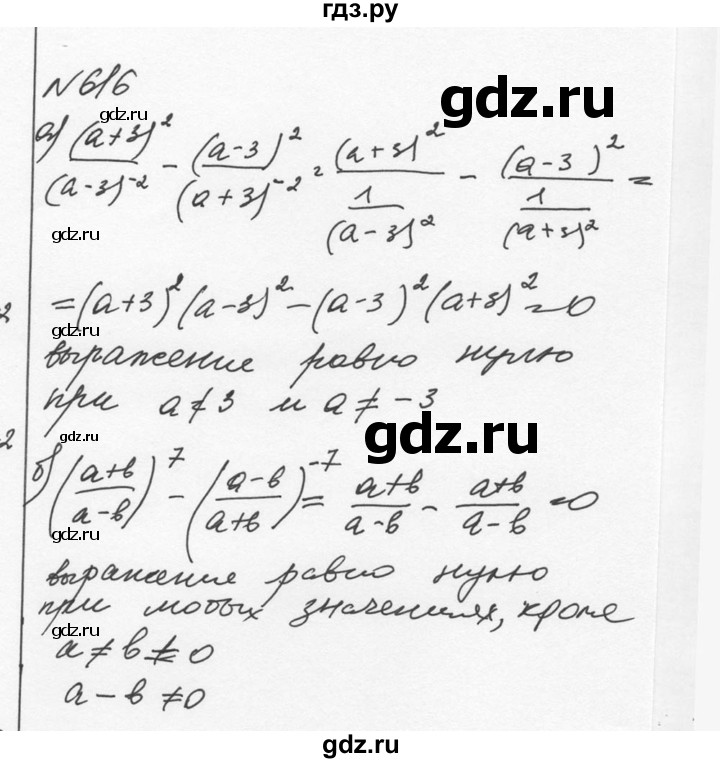 гдз.ру
N 616
gdz.ru
а) (a+3)^2/(a-3)^-2 - (a-3)^2/(a+3)^-2 = (a+3)^2/(1/(a-3)^2) - (a-3)^2/(1/(a+3)^2) =
gdz.ru
gdz.ru
= (a+3)^2 (a-3)^2 - (a-3)^2 (a+3)^2 = 0
gdz.ru
выражение равно нулю
при a ≠ 3 и a ≠ -3
gdz.ru
gdz.ru
б) ((a+b)/(a-b))^7 - ((a-b)/(a+b))^-7 = (a+b)/(a-b) - (a+b)/(a-b) = 0
gdz.ru
выражение равно нулю
при любых значениях, кроме
gdz.ru
a ≠ b ≠ 0
a - b ≠ 0
gdz.ru